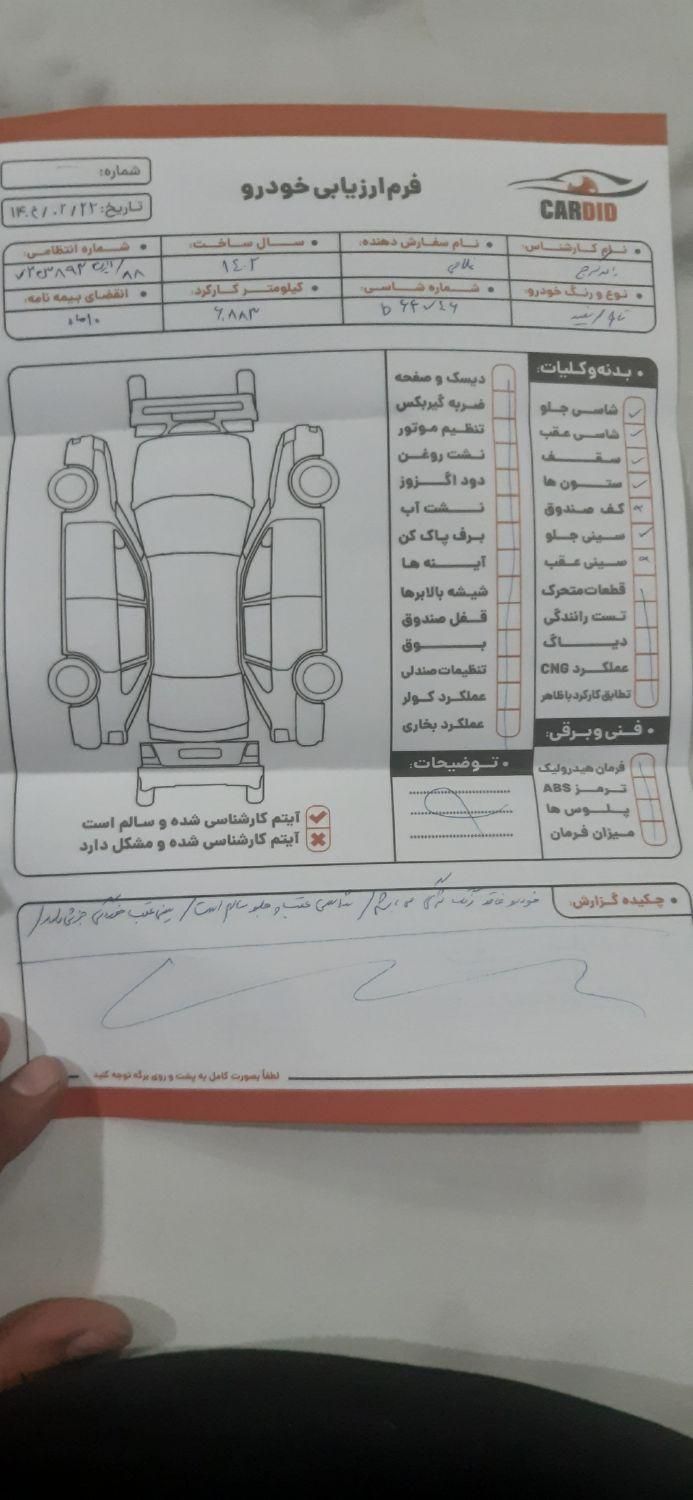 CARDID
فرم ارزیابی خودرو
شماره:
تاریخ:
• نام کارشناس:
• نام سفارش دهنده:
• سال ساخت:
۱۴۰۲
• شماره انتظامی:
• نوع و رنگ خودرو:
• شماره شاسی:
• کیلومتر کارکرد:
• انقضای بیمه نامه:
• بدنه و کلیات:
شاسی جلو
شاسی عقب
سقف
ستون ها
کف صندوق
سینی جلو
سینی عقب
قطعات متحرک
تست رانندگی
دیاگ
عملکرد CNG
تطابق کارکرد با ظاهر
• فنی و برقی:
فرمان هیدرولیک
ترمز ABS
پلوس ها
میزان فرمان
دیسک و صفحه
ضربه گیربکس
تنظیم موتور
نشت روغن
دود اگزوز
نشت آب
برف پاک کن
آینه ها
شیشه بالابرها
قفل صندوق
بوق
تنظیمات صندلی
عملکرد کولر
عملکرد بخاری
• توضیحات:
آیتم کارشناسی شده و سالم است
آیتم کارشناسی شده و مشکل دارد
• چکیده گزارش:
خودرو فاقد رنگ / شاسی عقب و جلو سالم است / سینی عقب جزئی دارد /
لطفاً بصورت کامل به پشت و روی برگه توجه کنید